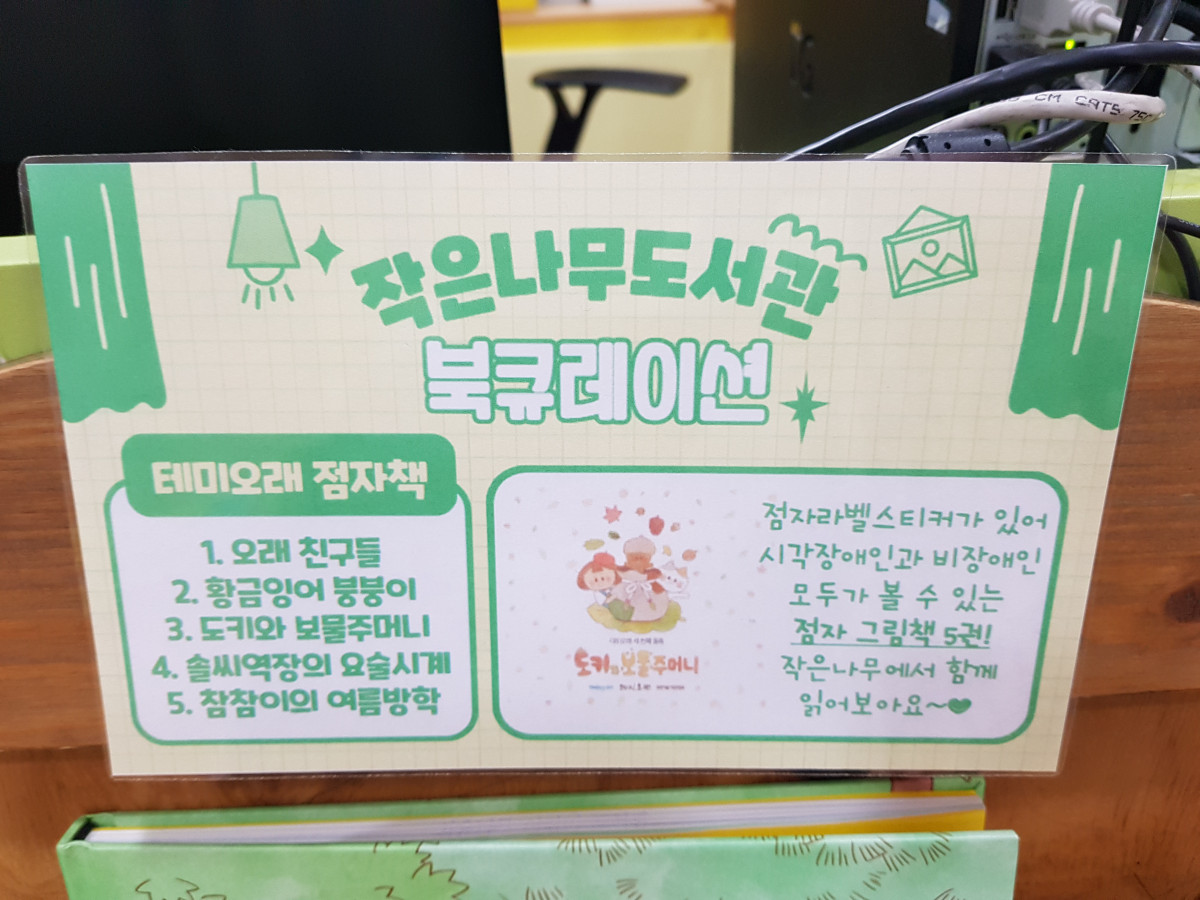 CM CAT5
작은나무도서관
북큐레이션
테미오래 점자책
1. 오래 친구들
2. 황금잉어 붕붕이
3. 도키와 보물주머니
4. 솔씨역장의 요술시계
5. 참참이의 여름방학
도키와 보물주머니
점자라벨스티커가 있어
시각장애인과 비장애인
모두가 볼 수 있는
점자 그림책 5권!
작은나무에서 함께
읽어보아요~♥